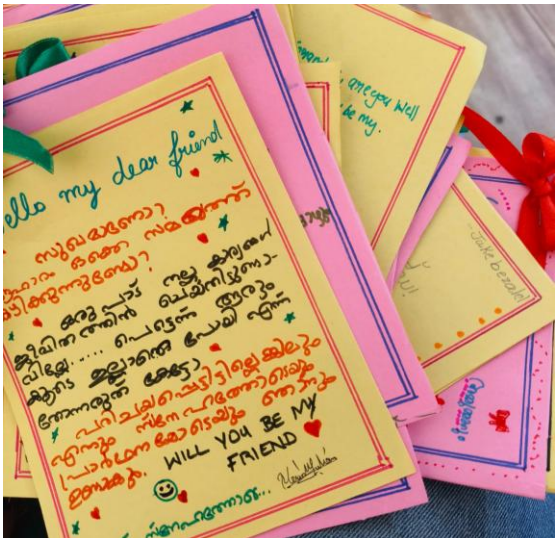 Hello my dear friend
സുഖമാണോ?
ആഹാരം ഒക്കെ സമയത്ത്
കഴിക്കുന്നുണ്ടോ?
ഒരുപാട് നല്ല കാര്യങ്ങൾ
ജീവിതത്തിൽ ചെയ്തിട്ടുണ്ടാ-
വില്ലേ..... പെട്ടെന്ന് ആരും
കൂടെ ഇല്ലാതെ പോയി എന്ന്
തോന്നരുത് കേട്ടോ
പരിചയപ്പെട്ടിട്ടില്ലെങ്കിലും
എന്നും സ്നേഹത്തോടെയും
പ്രാർഥനയോടെയും ഞാനും
ഉണ്ടാകും. WILL YOU BE MY
FRIEND
സ്നേഹത്തോടെ...
are you well
be my.